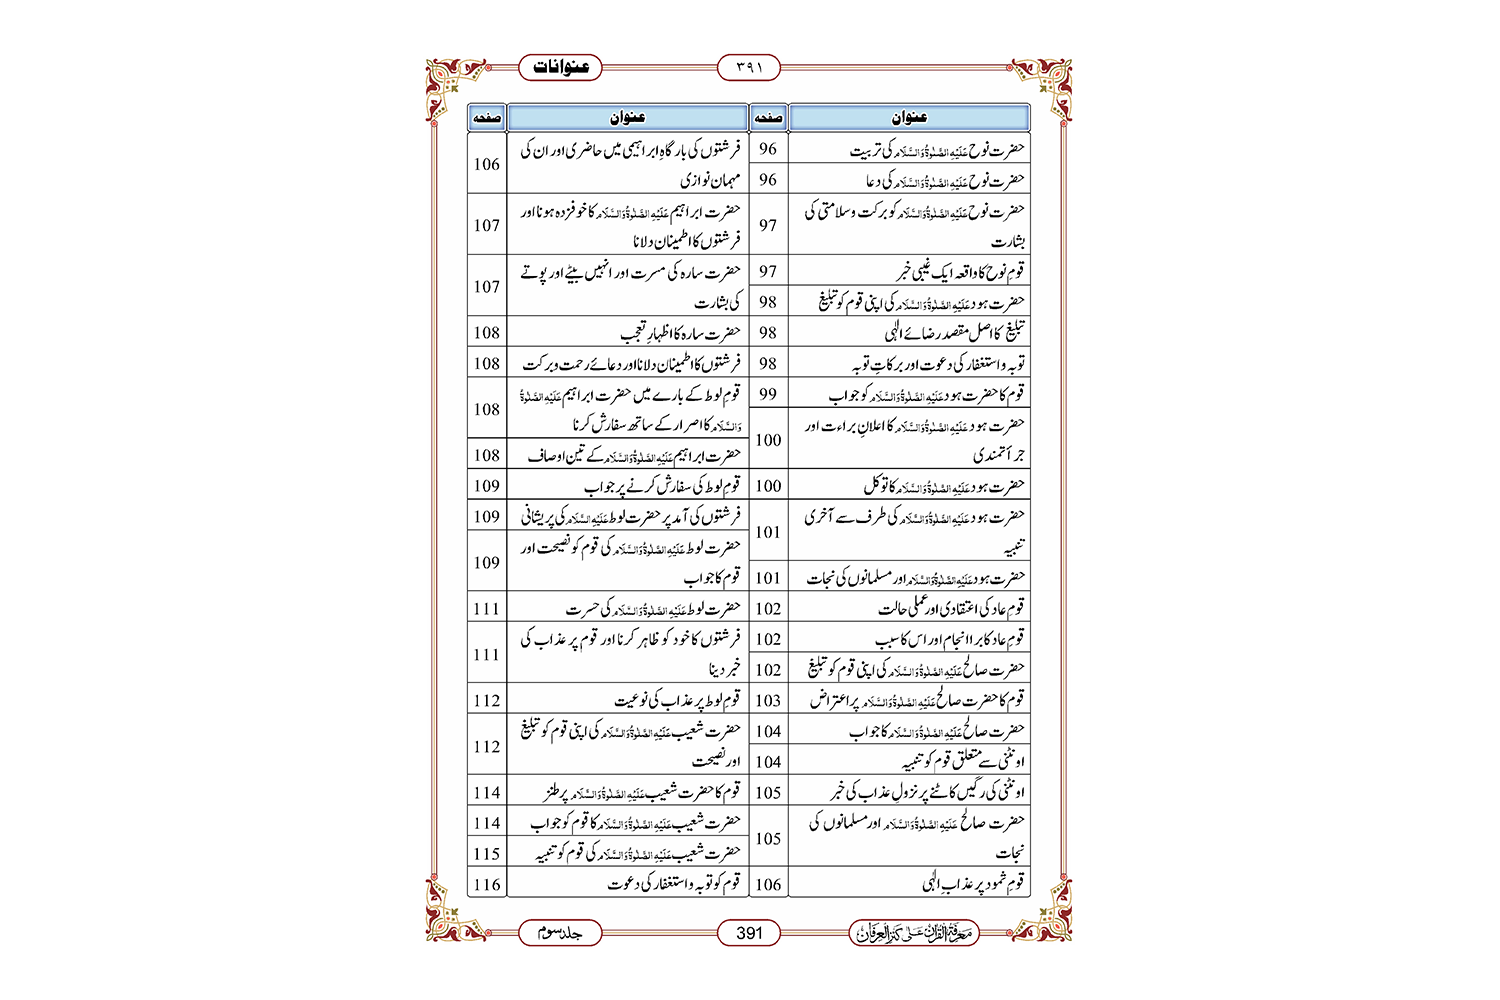 عنوانات
۳۹۱
عنوان
صفحہ
حضرت نوح عَلَیْہِ الصَّلٰوۃُ وَالسَّلَام کی تربیت
96
حضرت نوح عَلَیْہِ الصَّلٰوۃُ وَالسَّلَام کی دعا
96
حضرت نوح عَلَیْہِ الصَّلٰوۃُ وَالسَّلَام کو برکت و سلامتی کی
بشارت
97
قومِ نوح کا واقعہ ایک غیبی خبر
97
حضرت ہود عَلَیْہِ الصَّلٰوۃُ وَالسَّلَام کی اپنی قوم کو تبلیغ
98
تبلیغ کا اصل مقصد رضائے الٰہی
98
توبہ و استغفار کی دعوت اور برکاتِ توبہ
98
قوم کا حضرت ہود عَلَیْہِ الصَّلٰوۃُ وَالسَّلَام کو جواب
99
حضرت ہود عَلَیْہِ الصَّلٰوۃُ وَالسَّلَام کا اعلانِ براءت اور
جرأتمندی
100
حضرت ہود عَلَیْہِ الصَّلٰوۃُ وَالسَّلَام کا توکل
100
حضرت ہود عَلَیْہِ الصَّلٰوۃُ وَالسَّلَام کی طرف سے آخری
تنبیہ
101
حضرت ہود عَلَیْہِ الصَّلٰوۃُ وَالسَّلَام اور مسلمانوں کی نجات
101
قومِ عاد کی اعتقادی اور عملی حالت
102
قومِ عاد کا برا انجام اور اس کا سبب
102
حضرت صالح عَلَیْہِ الصَّلٰوۃُ وَالسَّلَام کی اپنی قوم کو تبلیغ
102
قوم کا حضرت صالح عَلَیْہِ الصَّلٰوۃُ وَالسَّلَام پر اعتراض
103
حضرت صالح عَلَیْہِ الصَّلٰوۃُ وَالسَّلَام کا جواب
104
اونٹنی سے متعلق قوم کو تنبیہ
104
اونٹنی کی رگیں کاٹنے پر نزولِ عذاب کی خبر
105
حضرت صالح عَلَیْہِ الصَّلٰوۃُ وَالسَّلَام اور مسلمانوں کی
نجات
105
قومِ ثمود پر عذابِ الٰہی
106
عنوان
صفحہ
فرشتوں کی بارگاہِ ابراہیمی میں حاضری اور ان کی
مہمان نوازی
106
حضرت ابراہیم عَلَیْہِ الصَّلٰوۃُ وَالسَّلَام کا خوفزدہ ہونا اور
فرشتوں کا اطمینان دلانا
107
حضرت سارہ کی مسرت اور انہیں بیٹے اور پوتے
کی بشارت
107
حضرت سارہ کا اظہارِ تعجب
108
فرشتوں کا اطمینان دلانا اور دعائے رحمت و برکت
108
قومِ لوط کے بارے میں حضرت ابراہیم عَلَیْہِ الصَّلٰوۃُ
وَالسَّلَام کا اصرار کے ساتھ سفارش کرنا
108
حضرت ابراہیم عَلَیْہِ الصَّلٰوۃُ وَالسَّلَام کے تین اوصاف
108
قومِ لوط کی سفارش کرنے پر جواب
109
فرشتوں کی آمد پر حضرت لوط عَلَیْہِ السَّلَام کی پریشانی
109
حضرت لوط عَلَیْہِ الصَّلٰوۃُ وَالسَّلَام کی قوم کو نصیحت اور
قوم کا جواب
109
حضرت لوط عَلَیْہِ الصَّلٰوۃُ وَالسَّلَام کی حسرت
111
فرشتوں کا خود کو ظاہر کرنا اور قوم پر عذاب کی
خبر دینا
111
قومِ لوط پر عذاب کی نوعیت
112
حضرت شعیب عَلَیْہِ الصَّلٰوۃُ وَالسَّلَام کی اپنی قوم کو تبلیغ
اور نصیحت
112
قوم کا حضرت شعیب عَلَیْہِ الصَّلٰوۃُ وَالسَّلَام پر طنز
114
حضرت شعیب عَلَیْہِ الصَّلٰوۃُ وَالسَّلَام کا قوم کو جواب
114
حضرت شعیب عَلَیْہِ الصَّلٰوۃُ وَالسَّلَام کی قوم کو تنبیہ
115
قوم کو توبہ و استغفار کی دعوت
116
معرفۃ القرآن علٰی کنز العرفان
391
جلد سوم